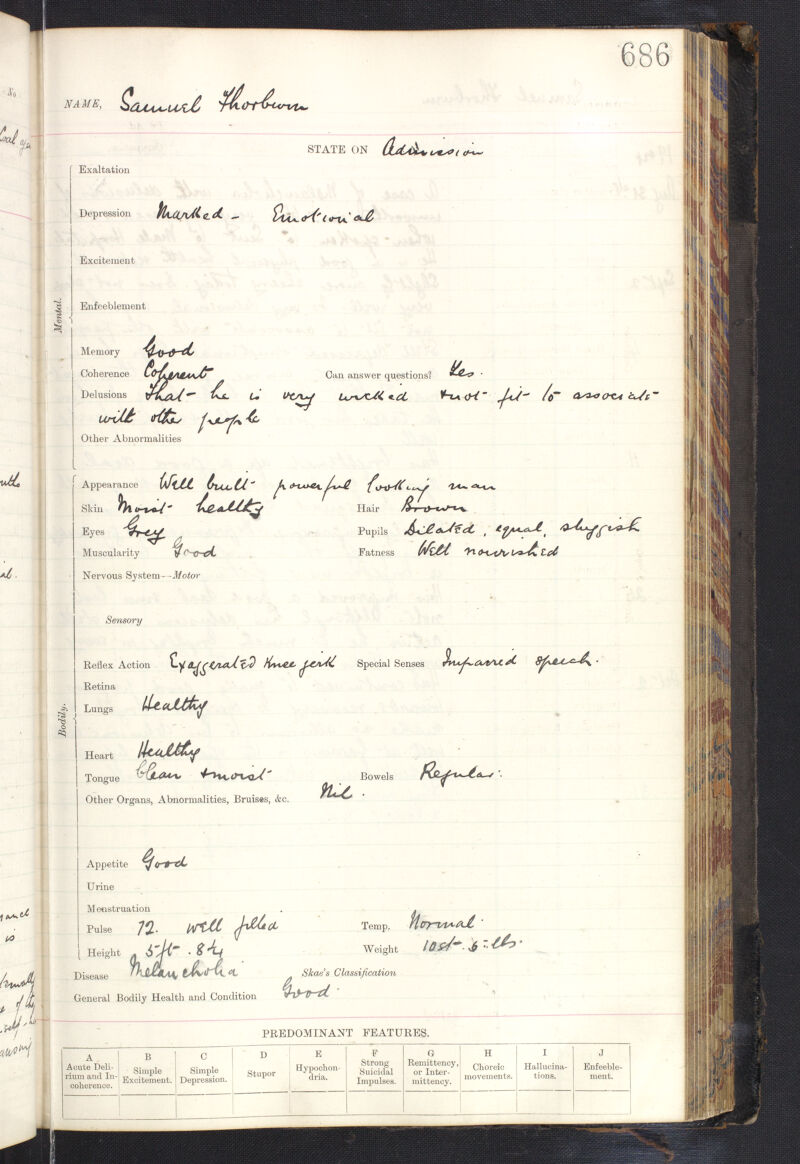 686
NAME, Samuel Thorburn
STATE ON Admission
Mental.
Exaltation
Depression Marked - Emotional
Excitement
Enfeeblement
Memory Good
Coherence Coherent Can answer questions? Yes.
Delusions That he is very wicked & not fit to associate
with other people
Other Abnormalities
Bodily.
Appearance Well built powerful looking man
Skin Moist healthy Hair Brown
Eyes Grey Pupils Dilated, equal, sluggish
Muscularity Good Fatness Well nourished
Nervous System--Motor
Sensory
Reflex Action Exaggerated Knee jerk Special Senses Impaired speech.
Retina
Lungs Healthy
Heart Healthy
Tongue Clean & moist Bowels Regular.
Other Organs, Abnormalities, Bruises, &c. Nil.
Appetite Good
Urine
Menstruation
Pulse 72. well filled Temp. Normal.
Height 5 ft. 8¼ Weight 10 st. 6 lbs.
Disease Melancholia Skae's Classification
General Bodily Health and Condition Good.
PREDOMINANT FEATURES.
A B C D E F G H I J
Acute Deli-
rium and In-
coherence.
Simple
Excitement.
Simple
Depression.
Stupor
Hypochon-
dria.
Strong
Suicidal
Impulses.
Remittency,
or Inter-
mittency.
Choreic
movements.
Hallucina-
tions.
Enfeeble-
ment.